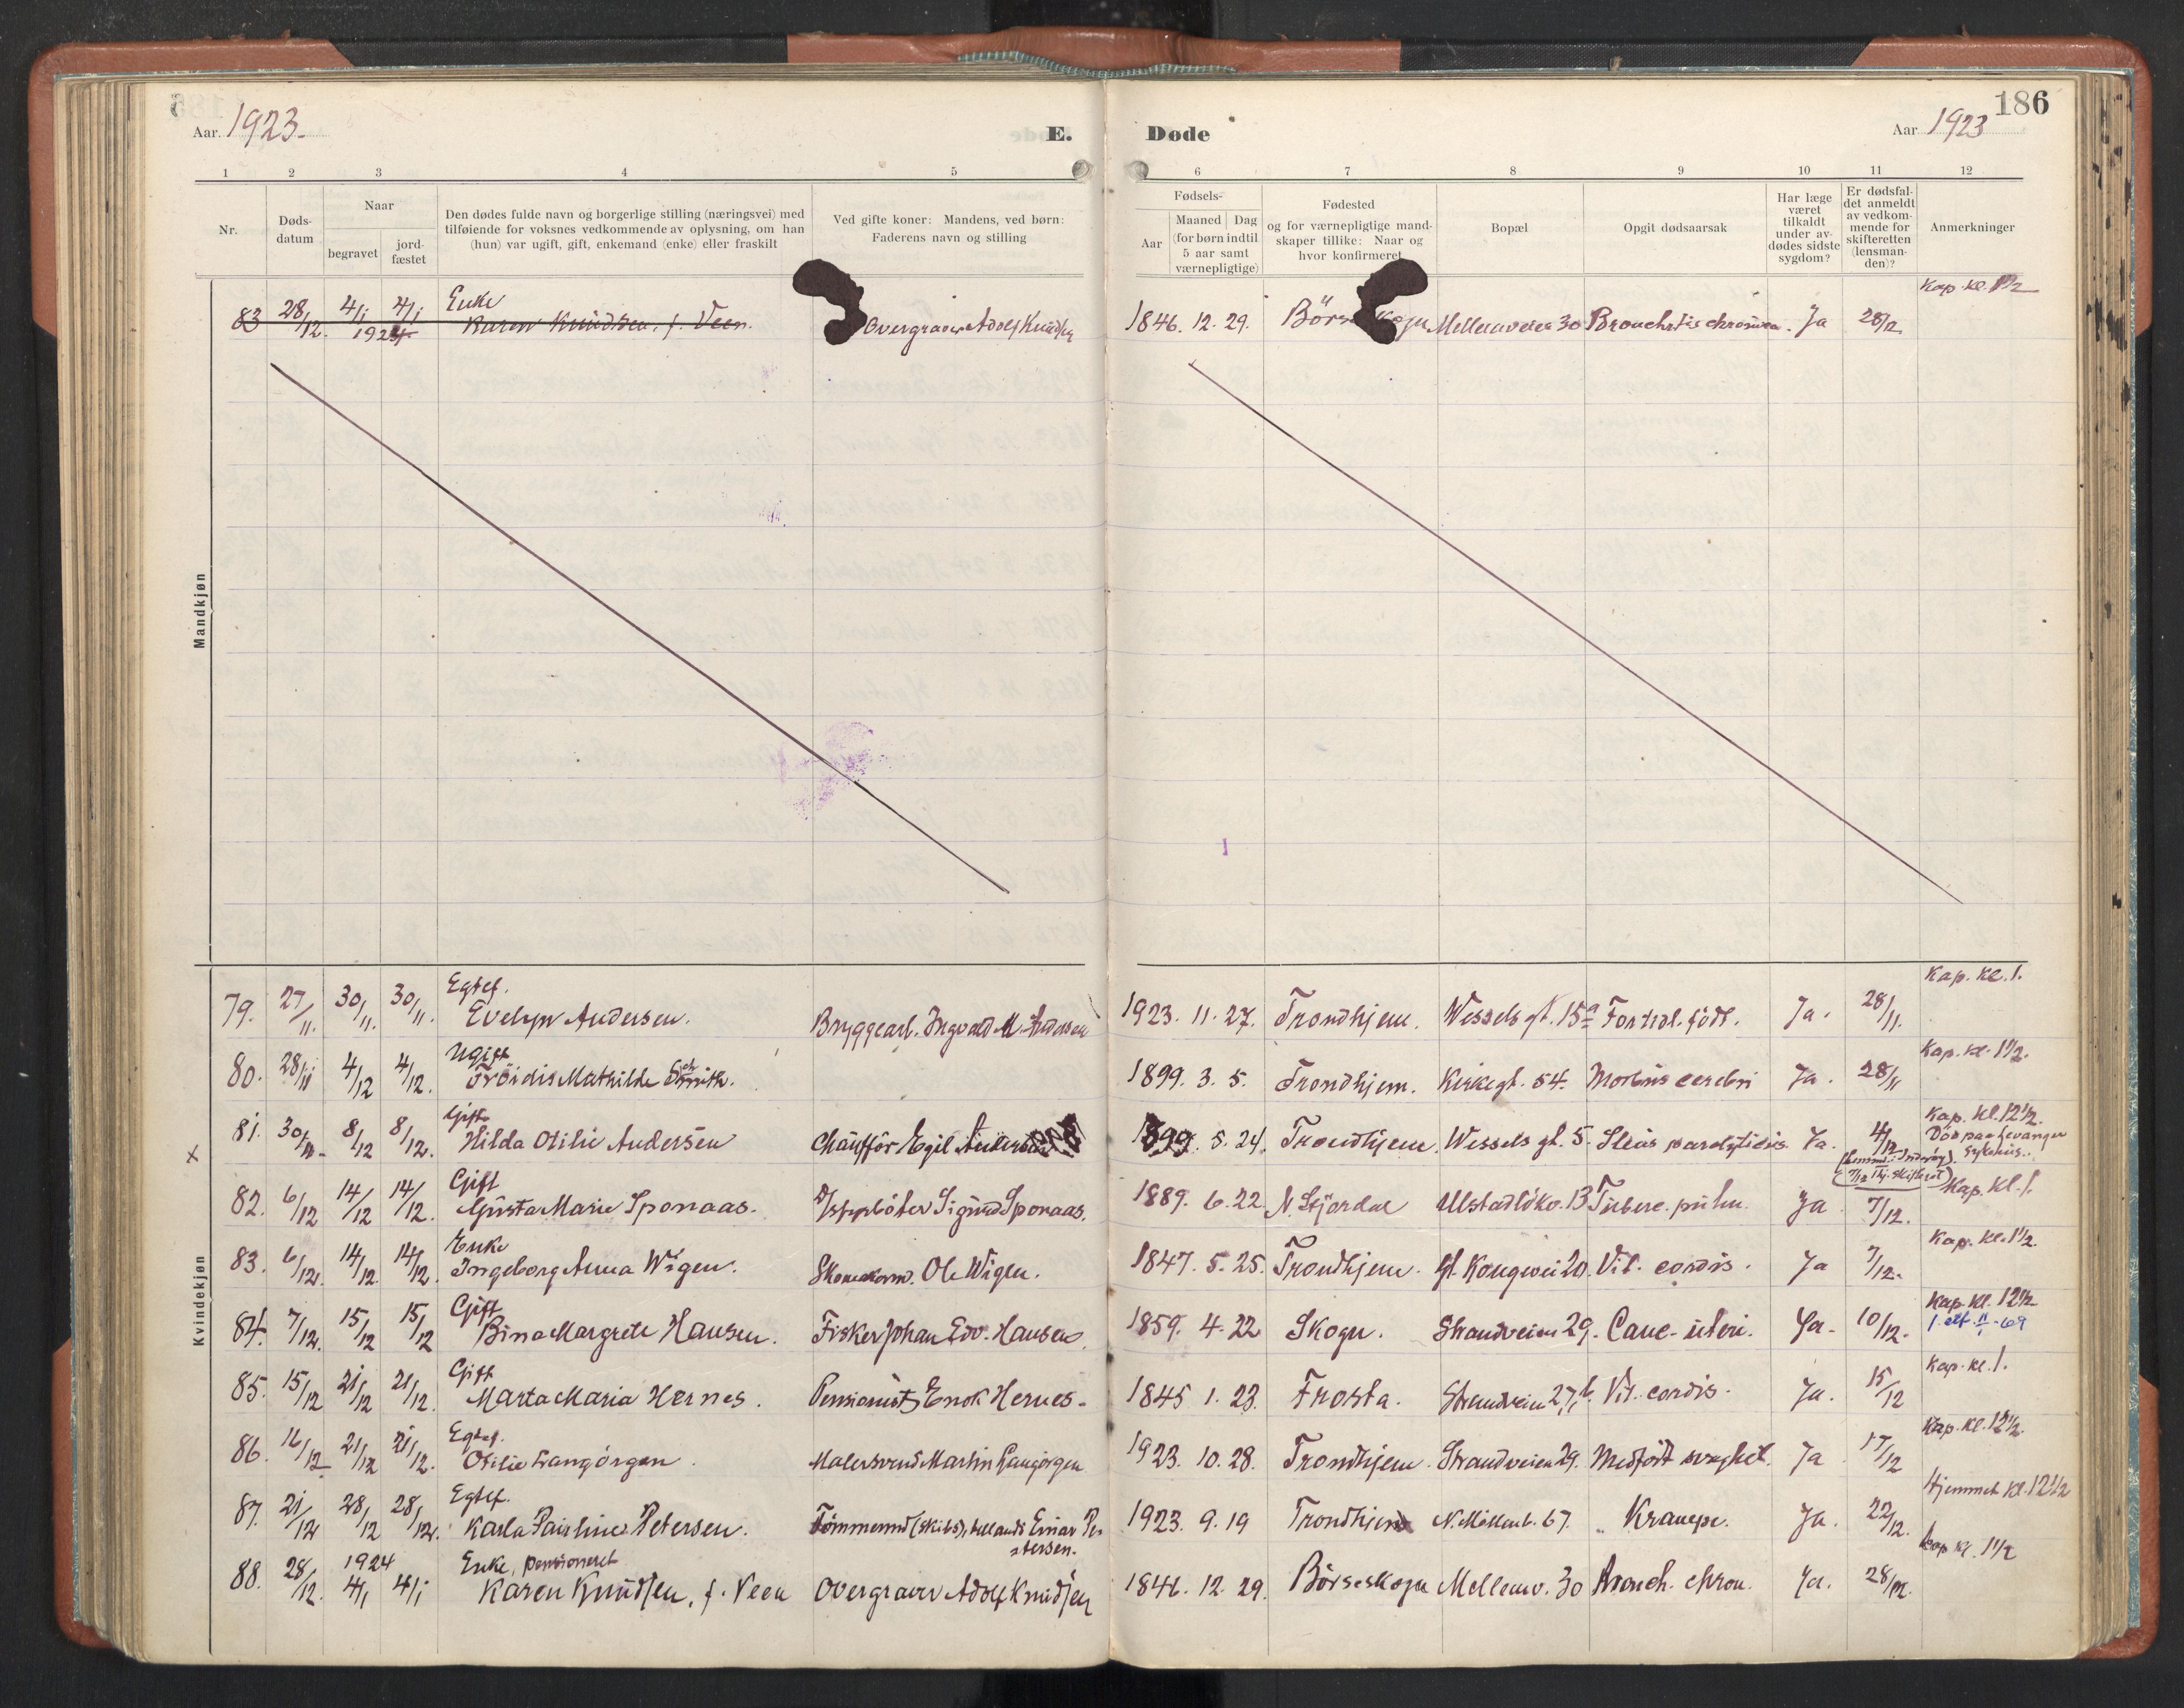 186
Aar 1923.
E.
Døde
Aar 1923
1 2 3 4 5 6 7 8 9 10 11 12
Nr.
Døds-
datum
Naar
begravet
jord-
fæstet
Den dødes fulde navn og borgerlige stilling (næringsvei) med
tilføiende for voksnes vedkommende av oplysning, om han
(hun) var ugift, gift, enkemand (enke) eller fraskilt
Ved gifte koner: Mandens, ved børn:
Faderens navn og stilling
Fødsels-
Aar
Maaned Dag
(for børn indtil
5 aar samt
værnepligtige)
Fødested
og for værnepligtige mand-
skaper tillike: Naar og
hvor konfirmeret
Bopæl
Opgit dødsaarsak
Har læge
været
tilkaldt
under av-
dødes sidste
sygdom?
Er dødsfal-
det anmeldt
av vedkom-
mende for
skifteretten
(lensman-
den)?
Anmerkninger
Mandkjøn
Kap. kl. 1 1/2
Enke
83 28/12. 4/1 4/1 Karen Knudsen, f. Veen. Overgraver Adolf Knudsen 1846. 12. 29. Mellemveien 30 Bronchitis chronica. Ja 28/12
1924
Kvindekjøn
Egtef. Kap. kl. 1.
79. 27/11. 30/11. 30/11. Evelyn Andersen. Bryggearb. Ingvald M. Andersen 1923. 11. 27. Trondhjem. Wessels gt. 15a For tidl. født. Ja. 28/11.
Ugift Kap. kl. 1 1/2.
80. 28/11 4/12 4/12. Fröidis Mathilde 1899. 3. 5. Trondhjem. Kirkegt. 54. Morbus cerebri Ja. 28/11
Gift Kap. kl. 12 1/2.
81. 30/11. 8/12 8/12. Hilda Otilie Andersen Chauffør Egil Andersen 1899. 5. 24. Trondhjem. Wessels gt. 5. Ileus paralyticus. Ja. 4/12 Död paa Levanger
Sykehus.
7/12 Thj. skifteret)
Gift Kap. kl. 1.
82. 6/12 14/12 14/12. Gusta Marie Sponaas. Sigurd Sponaas. 1889. 6. 22. N. Stjørdal Ulstadløkv. 13 Tuberc. pulm. Ja 7/12.
Enke Kap. kl. 1 1/2.
83. 6/12. 14/12. 14/12. Ingeborg Anna Wigen. Ole Wigen. 1847. 5. 25. Trondhjem. Gl. Kongevei 20. Vit. cordis. Ja 7/12.
Gift Kap. kl. 12 1/2
84. 7/12. 15/12 15/12 Bina Margrete Hansen. Fisker Johan Edv. Hansen. 1859. 4. 22 Skogn. Strandveien 29. Canc. uteri. Ja. 10/12. 1 att. 11/1-69
Gift Kap. kl. 1.
85. 15/12 21/12 21/12. Marta Maria Hernes. Pensionist Enok Hernes. 1845 1. 23. Frosta. Strandveien 27b. Vit. cordis. Ja. 15/12
Egtef. Kap. kl. 12 1/2.
86. 16/12 21/12 21/12. Otilie Langørgen. Malersvend Martin Langørgen 1923. 10. 28. Trondhjem. Strandveien 29. Medfødt svaghet. Ja 17/12
Egtef. Hjemmet kl. 12 1/2
87. 21/12 28/12 28/12. Karla Pauline Petersen. Tømmermd (skibs), Einar Pe-
tersen.
1923. 9. 19 Trondhjem N. Møllenb. 67. Krampe. Ja. 22/12.
1924 Enke, pensioneret Kap kl. 1 1/2
88. 28/12. 4/1 4/1 Karen Knudsen, f. Veen Overgraver Adolf Knudsen 1846. 12. 29. Börseskogn Mellemv. 30 Bronch. chron. Ja. 28/12.